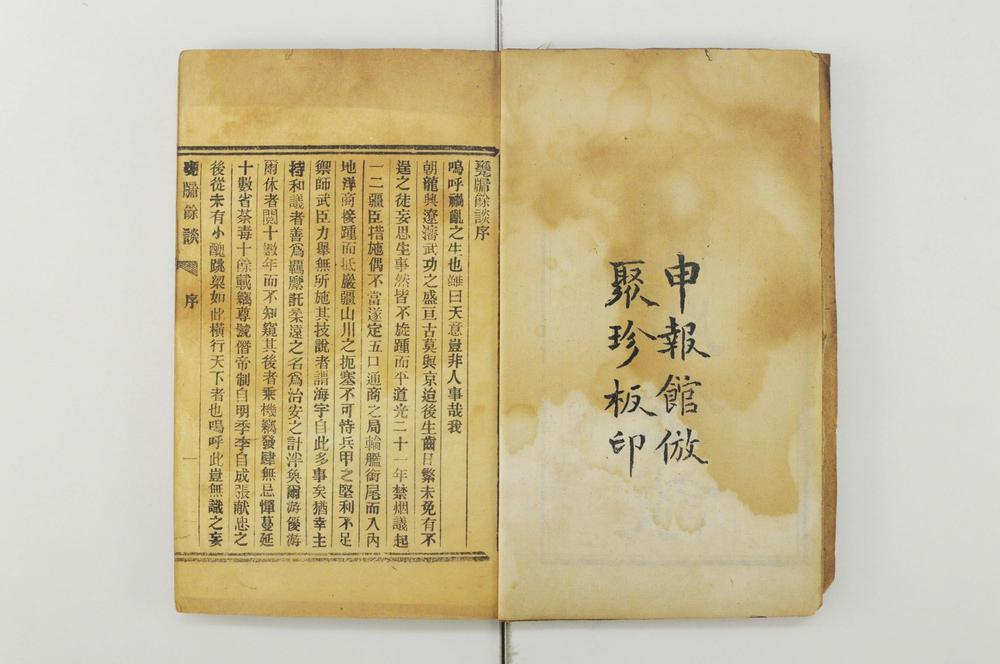 申報館倣
聚珍板印
甕牖餘談序
嗚呼禍亂之生也雖曰天意豈非人事哉我
朝龍興遼瀋武功之盛亘古莫與京迨後生齒日繁未免有不
逞之徒妄思生事然皆不旋踵而平道光二十一年禁烟議起
一二疆臣措施偶不當遂定五口通商之局輪艦銜尾而入內
地洋商接踵而抵巖疆山川之扼塞不可恃兵甲之堅利不足
禦師武臣力舉無所施其技說者謂海宇自此多事矣猶幸主
持和議者善爲羈縻託柔遠之名爲治安之計泮奐爾游優游
爾休者閱十數年而不知窺其後者乘機竊發肆無忌憚蔓延
十數省荼毒十餘載竊尊號僭帝制自明季李自成張獻忠之
後從未有小醜跳梁如此橫行天下者也嗚呼此豈無識之妄
甕牖餘談 序